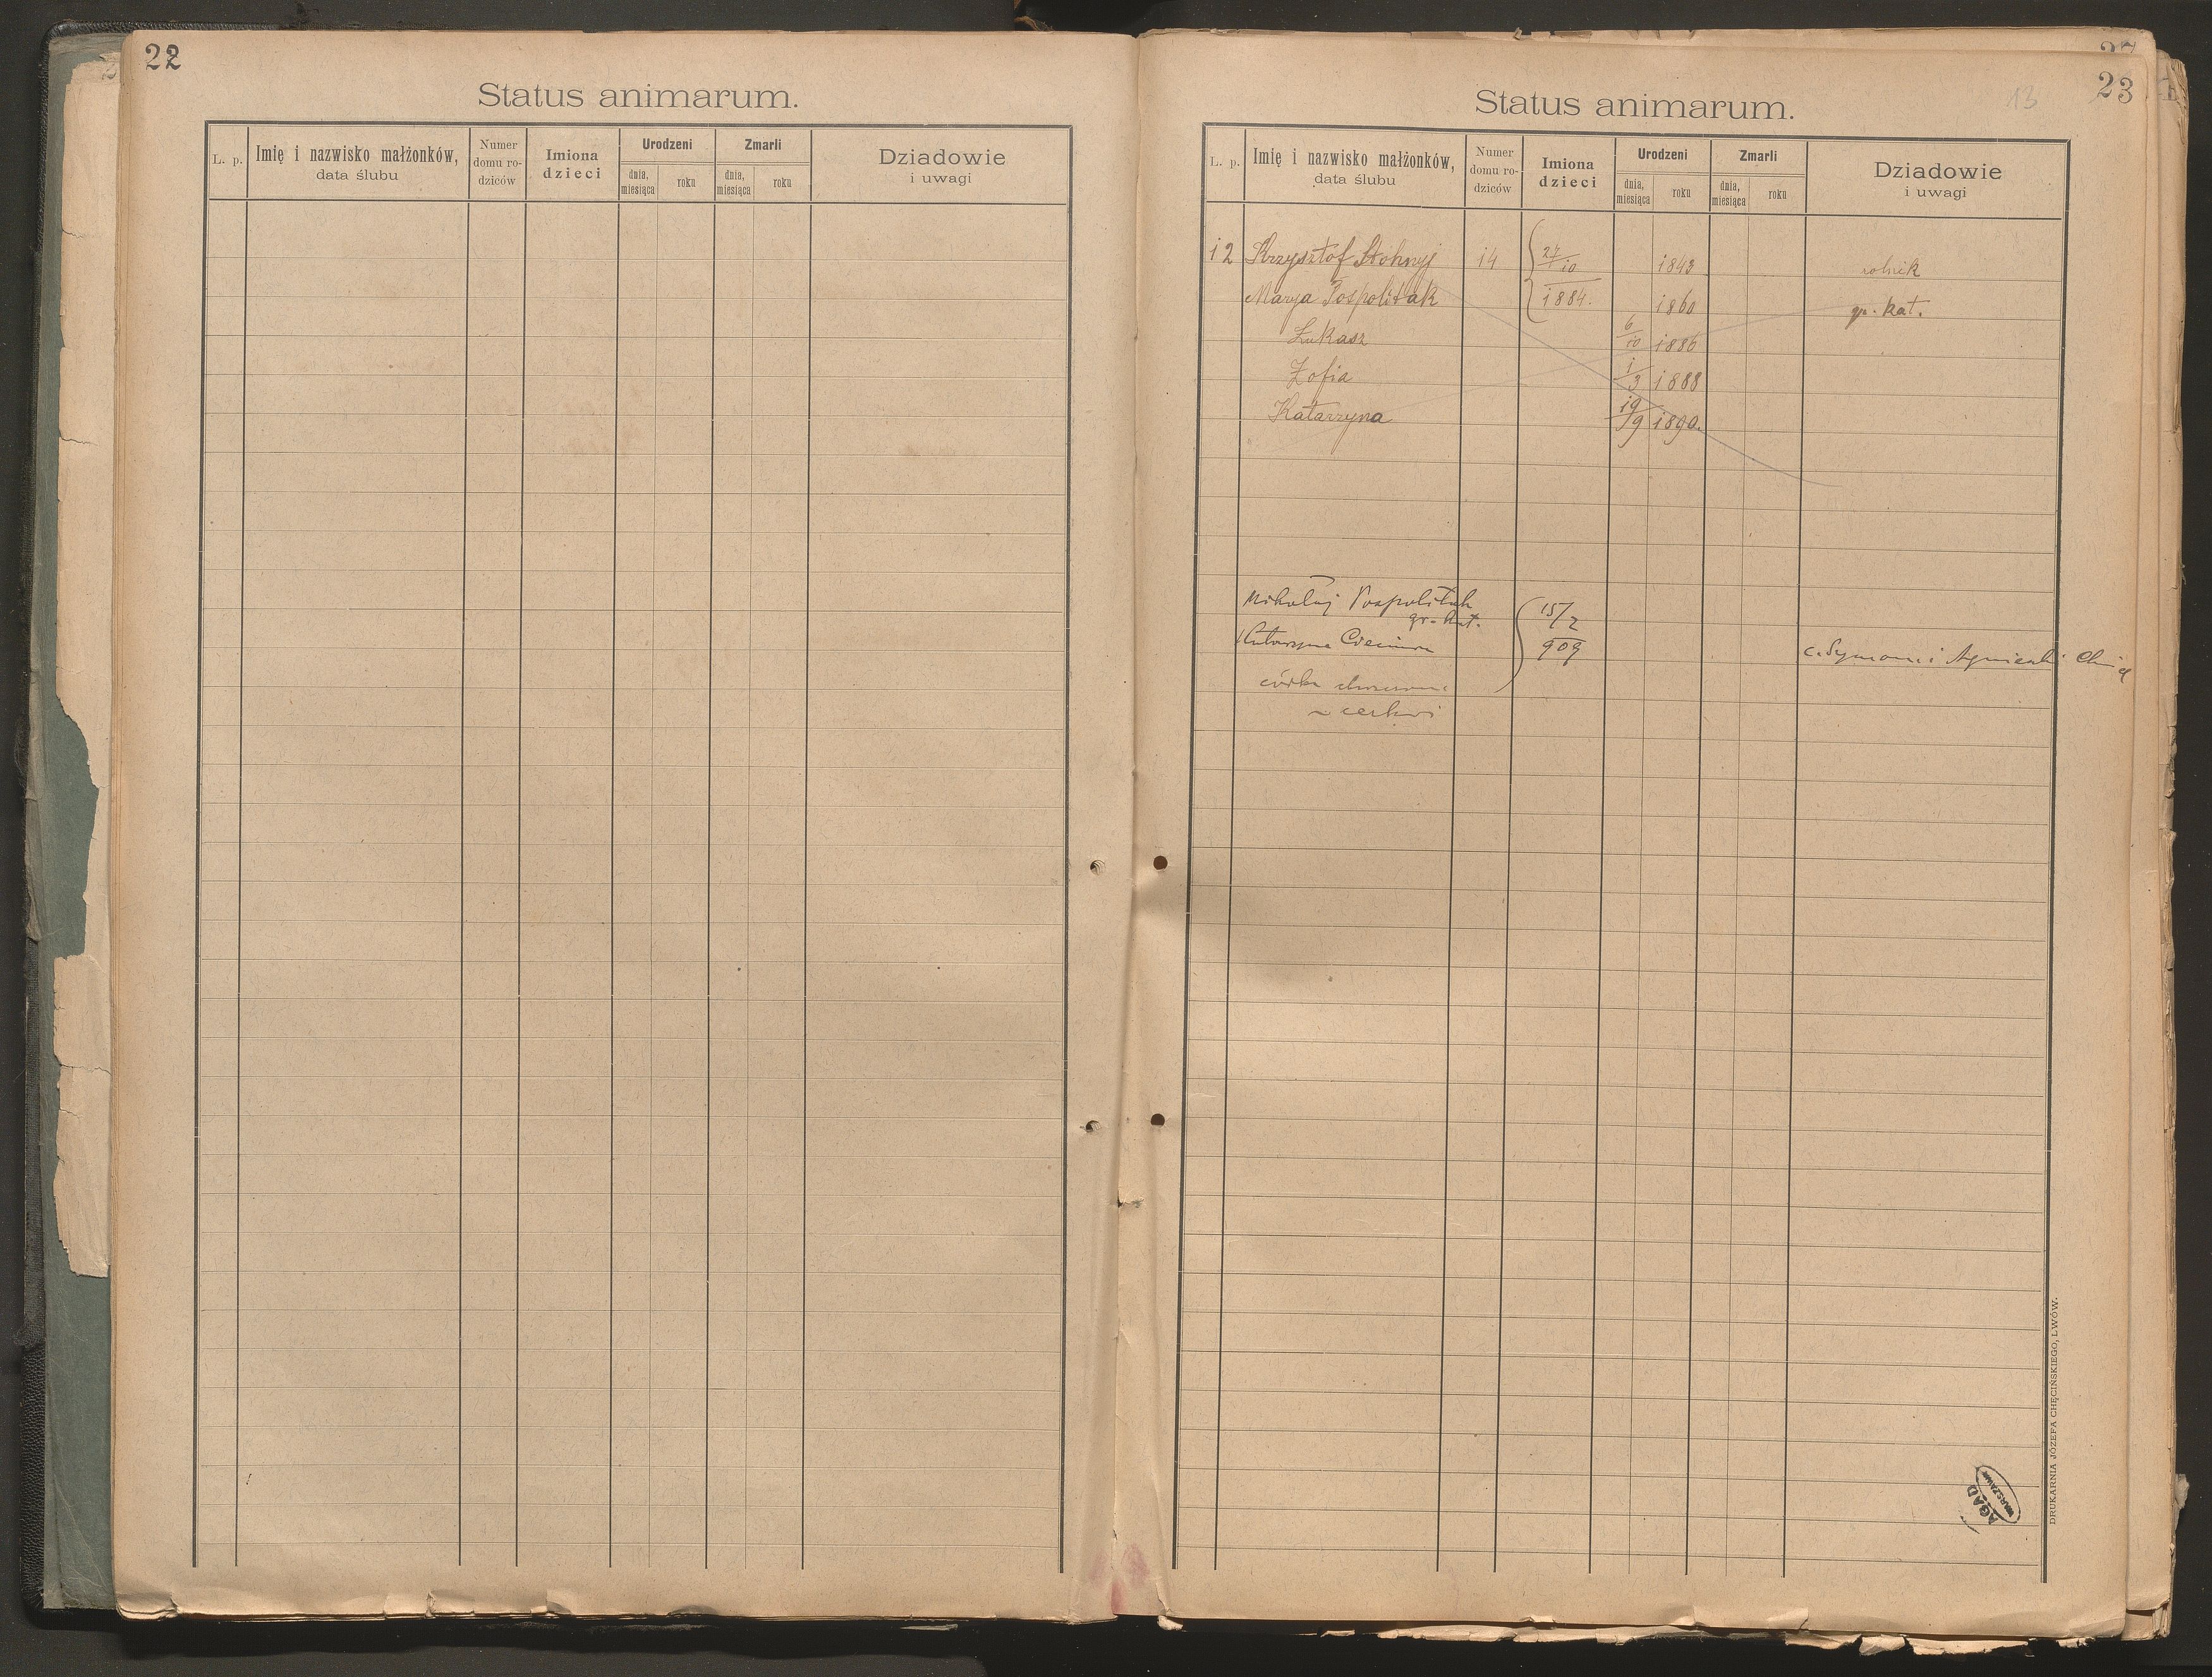 22
Status animarum.
L. p.
Imię i nazwisko małżonków,
data ślubu
Numer
domu ro-
dziców
Imiona
dzieci
Urodzeni
dnia,
miesiąca
roku
Zmarli
dnia,
miesiąca
roku
Dziadowie
i uwagi
23
13
Status animarum.
L. p.
Imię i nazwisko małżonków,
data ślubu
Numer
domu ro-
dziców
Imiona
dzieci
Urodzeni
dnia,
miesiąca
roku
Zmarli
dnia,
miesiąca
roku
Dziadowie
i uwagi
12 Krzysztof 14 27/10 1843 rolnik
Marya Pospolitak 1884. 1860 gr. kat.
Łukasz 6/10 1886
Zofia 1/3 1888
Katarzyna 19/9 1890.
Mikołaj Pospolitak 15/2
gr. kat.
Katarzyna 909 c. Symona i Agnieszki
córka chrzczona
w cerkwi
AGAD
WARSZAWA
DRUKARNIA JÓZEFA CHĘCIŃSKIEGO, LWÓW.